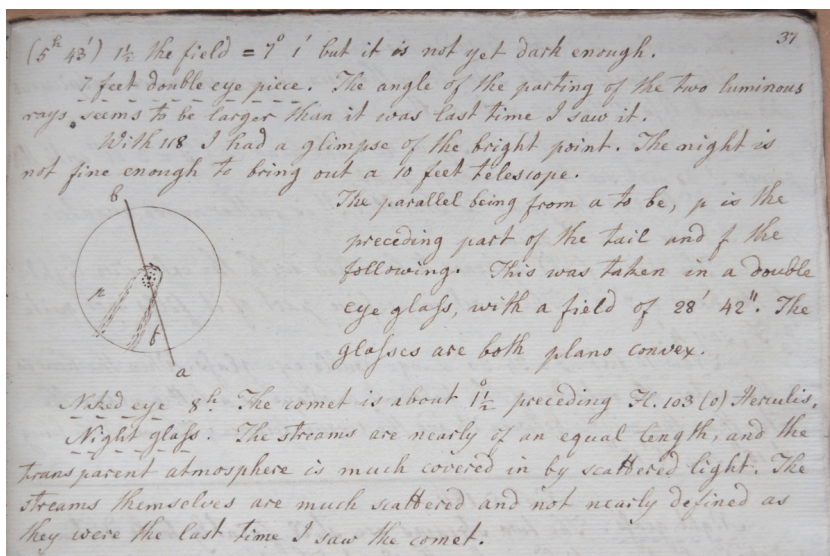 37
(5h 43') 1½ the field = 7° 1' but it is not yet dark enough.
7 feet double eye piece. The angle of the parting of the two luminous
rays seems to be larger than it was last time I saw it.
With 118 I had a glimpse of the bright point. The night is
not fine enough to bring out a 10 feet telescope.
b
n
f
a
The parallel being from a to be, p is the
preceding part of the tail and f the
following. This was taken in a double
eye glass, with a field of 28' 42". The
glasses are both plano convex.
Naked eye 8h. The comet is about 1°½ preceding Fl. 103 (o) Herculis.
Night glass. The streams are nearly of an equal length, and the
transparent atmosphere is much covered in by scattered light. The
streams themselves are much scattered and not nearly defined as
they were the last time I saw the comet.